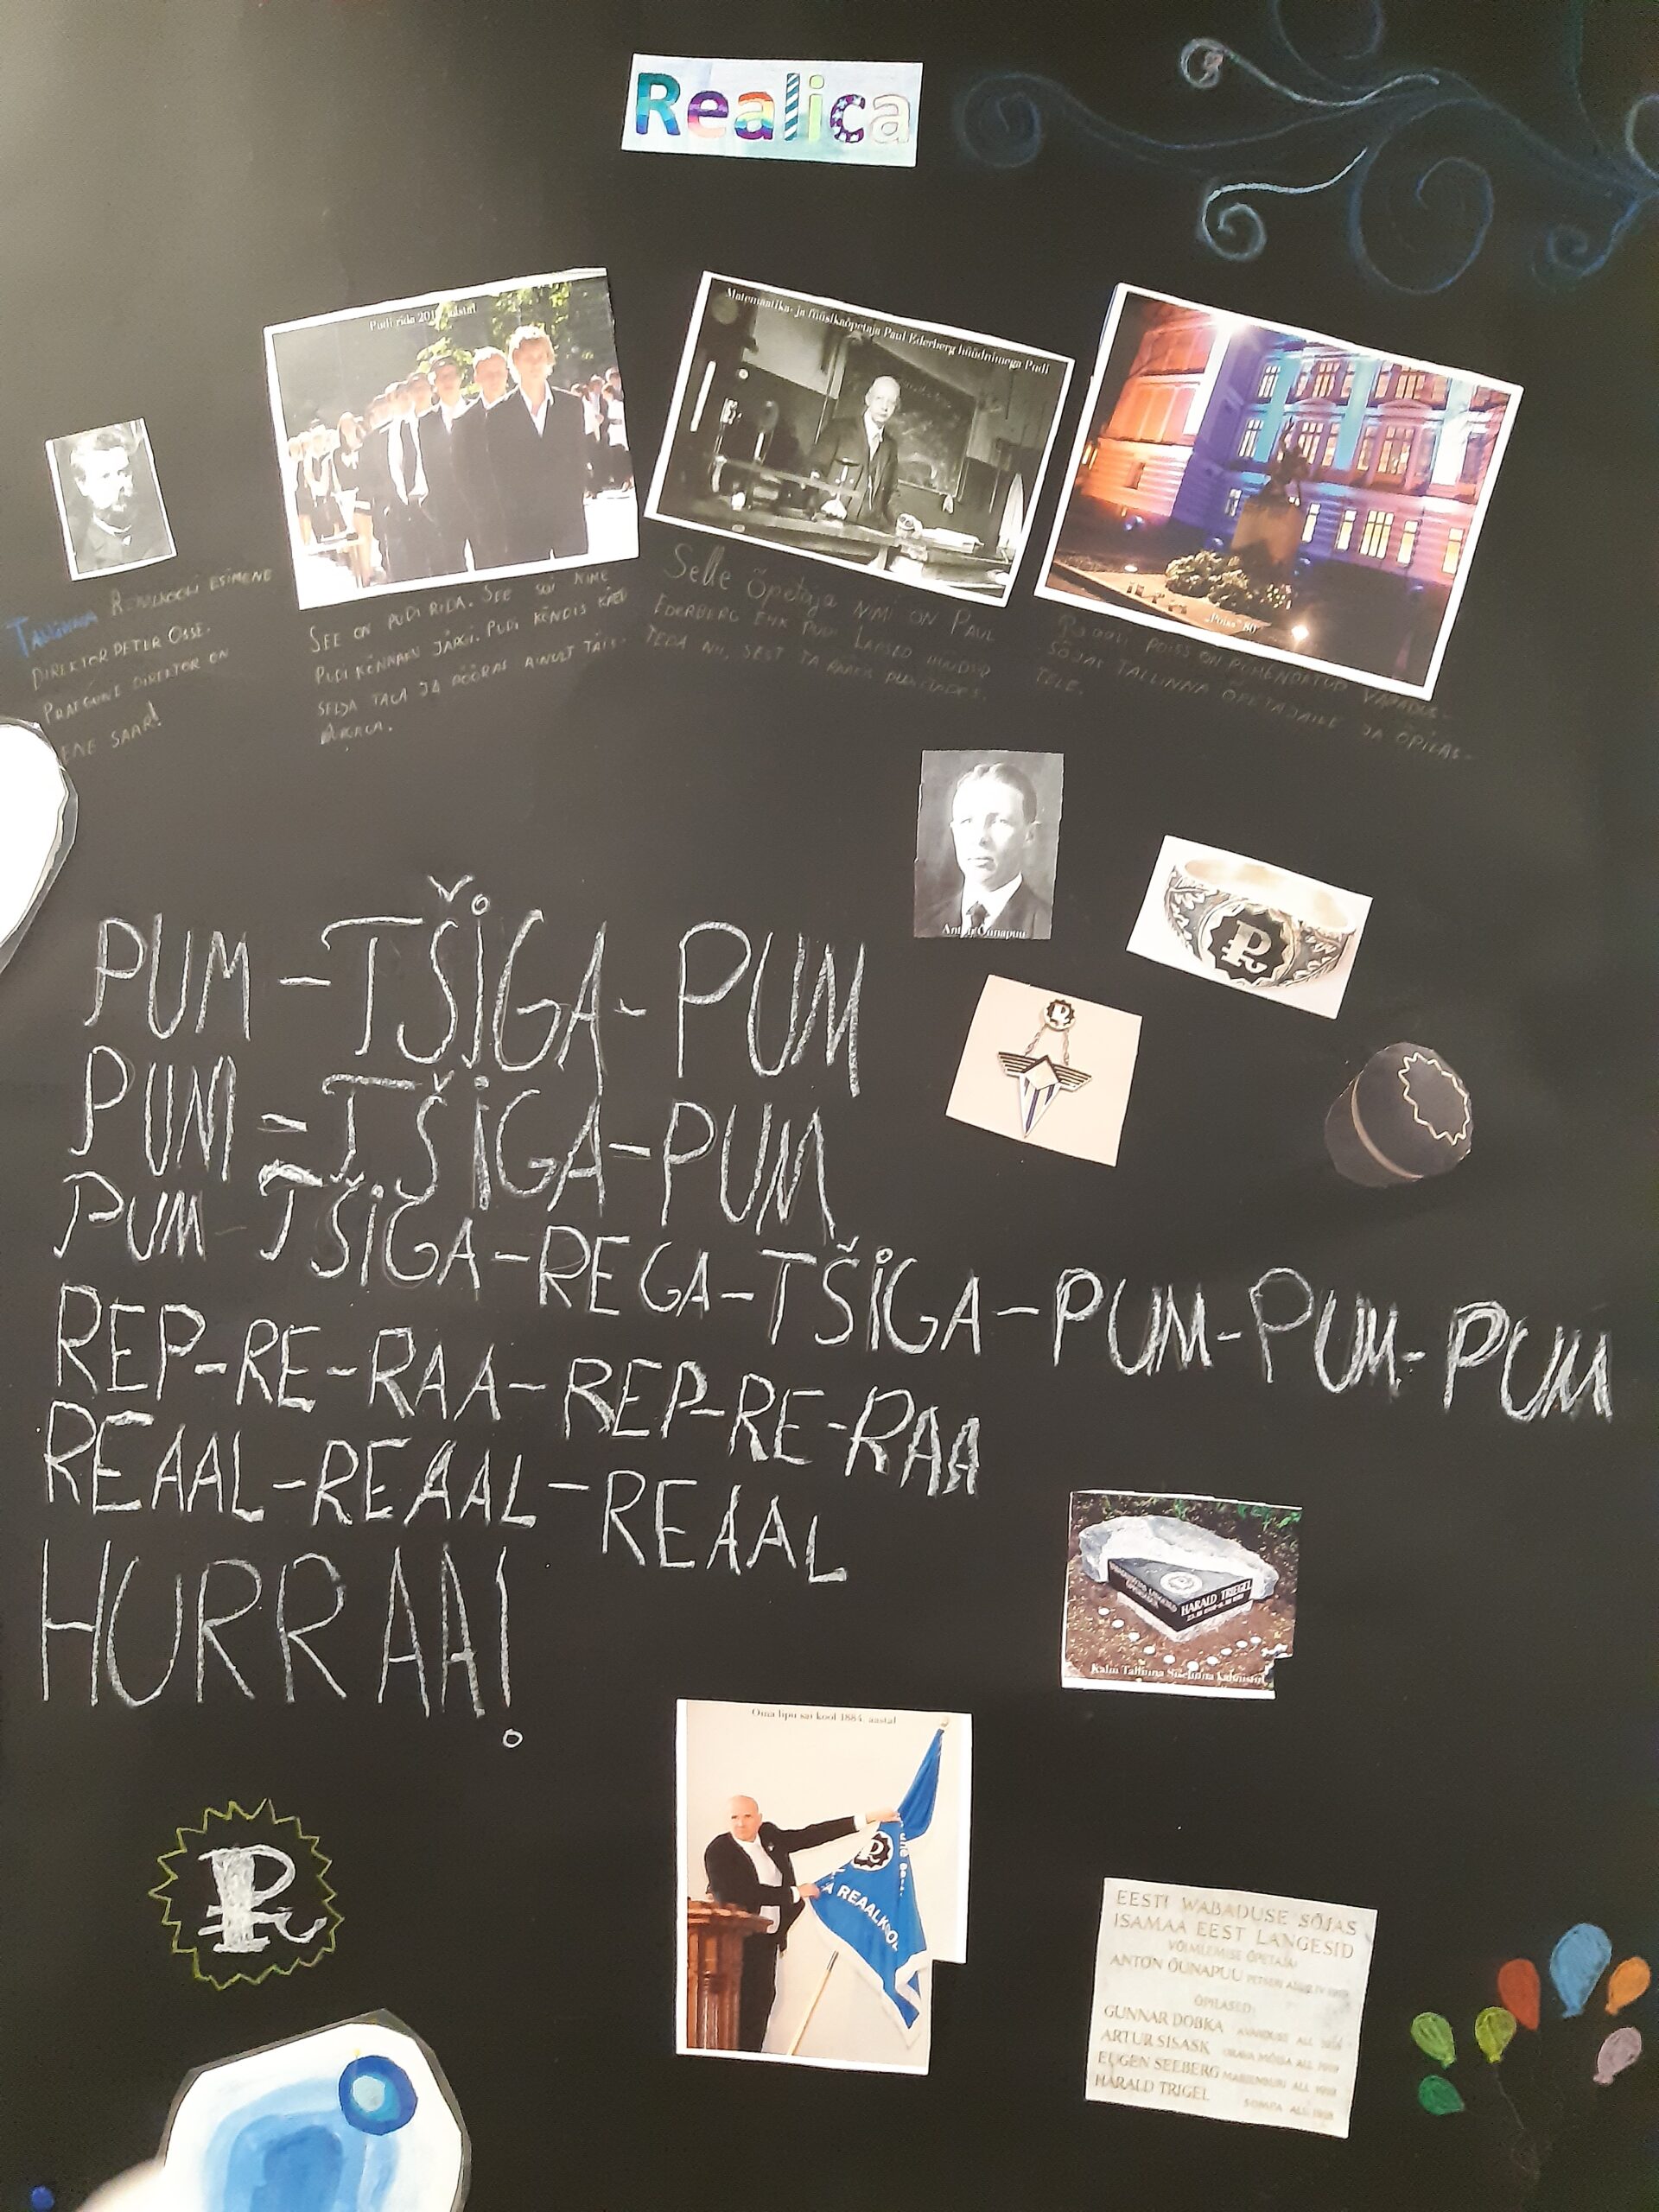 Realica
Pudi rida aastal
Matemaatika- ja füüsikaõpetaja Paul Ederberg hüüdnimega Pudi
"Poiss" 80
TALLINNA REAALKOOLI ESIMENE
DIREKTOR PETER OSSE.
PRAEGUNE DIREKTOR ON
ENE SAAR!
SEE ON PUDI RIDA. SEE SAI NIME
PUDI KÕNNAKU JÄRGI. PUDI KÕNDIS KÄED
SELJA TAGA JA PÖÖRAS AINULT TÄIS-
NURGA.
Selle Õpetaja NIMI ON PAUL
EDERBERG EHK PUDI. LAPSED HÜÜDSID
TEDA NII, SEST TA RÄÄKIS PUDISTADES.
REAALI POISS ON PÜHENDATUD VABADUS-
SÕJAS TALLINNA ÕPETAJAILE JA ÕPILAS-
TELE.
Anton Õunapuu
PUM-TŠIGA-PUM
PUM-TŠIGA-PUM
PUM-TŠIGA-REGA-TŠIGA-PUM-PUM-PUM
REP-RE-RAA-REP-RE-RAA
REAAL-REAAL-REAAL
HURRAA!
HARALD TRIEGEL
Kalm Tallinna Siselinna kalmistul
Oma lipu sai kool 1884. aastal
A REAALKOOL
EESTI WABADUSE SÕJAS
ISAMAA EEST LANGESID
VÕIMLEMISE ÕPETAJA:
ANTON ÕUNAPUU
ÕPILASED:
GUNNAR DOBKA
ARTUR SISASK
EUGEN SEEBERG MARIENBURI ALL 1919
HARALD TRIGEL